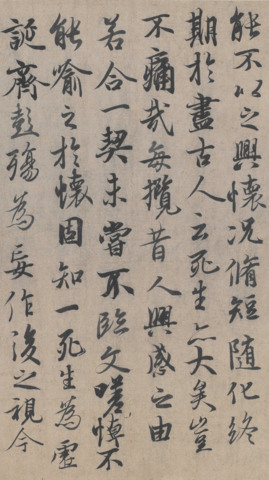 能不以之興懷況脩短隨化終
期於盡古人云死生亦大矣豈
不痛哉每攬昔人興感之由
若合一契未嘗不臨文嗟悼不
能喻之於懷固知一死生為虛
誕齊彭殤為妄作後之視今